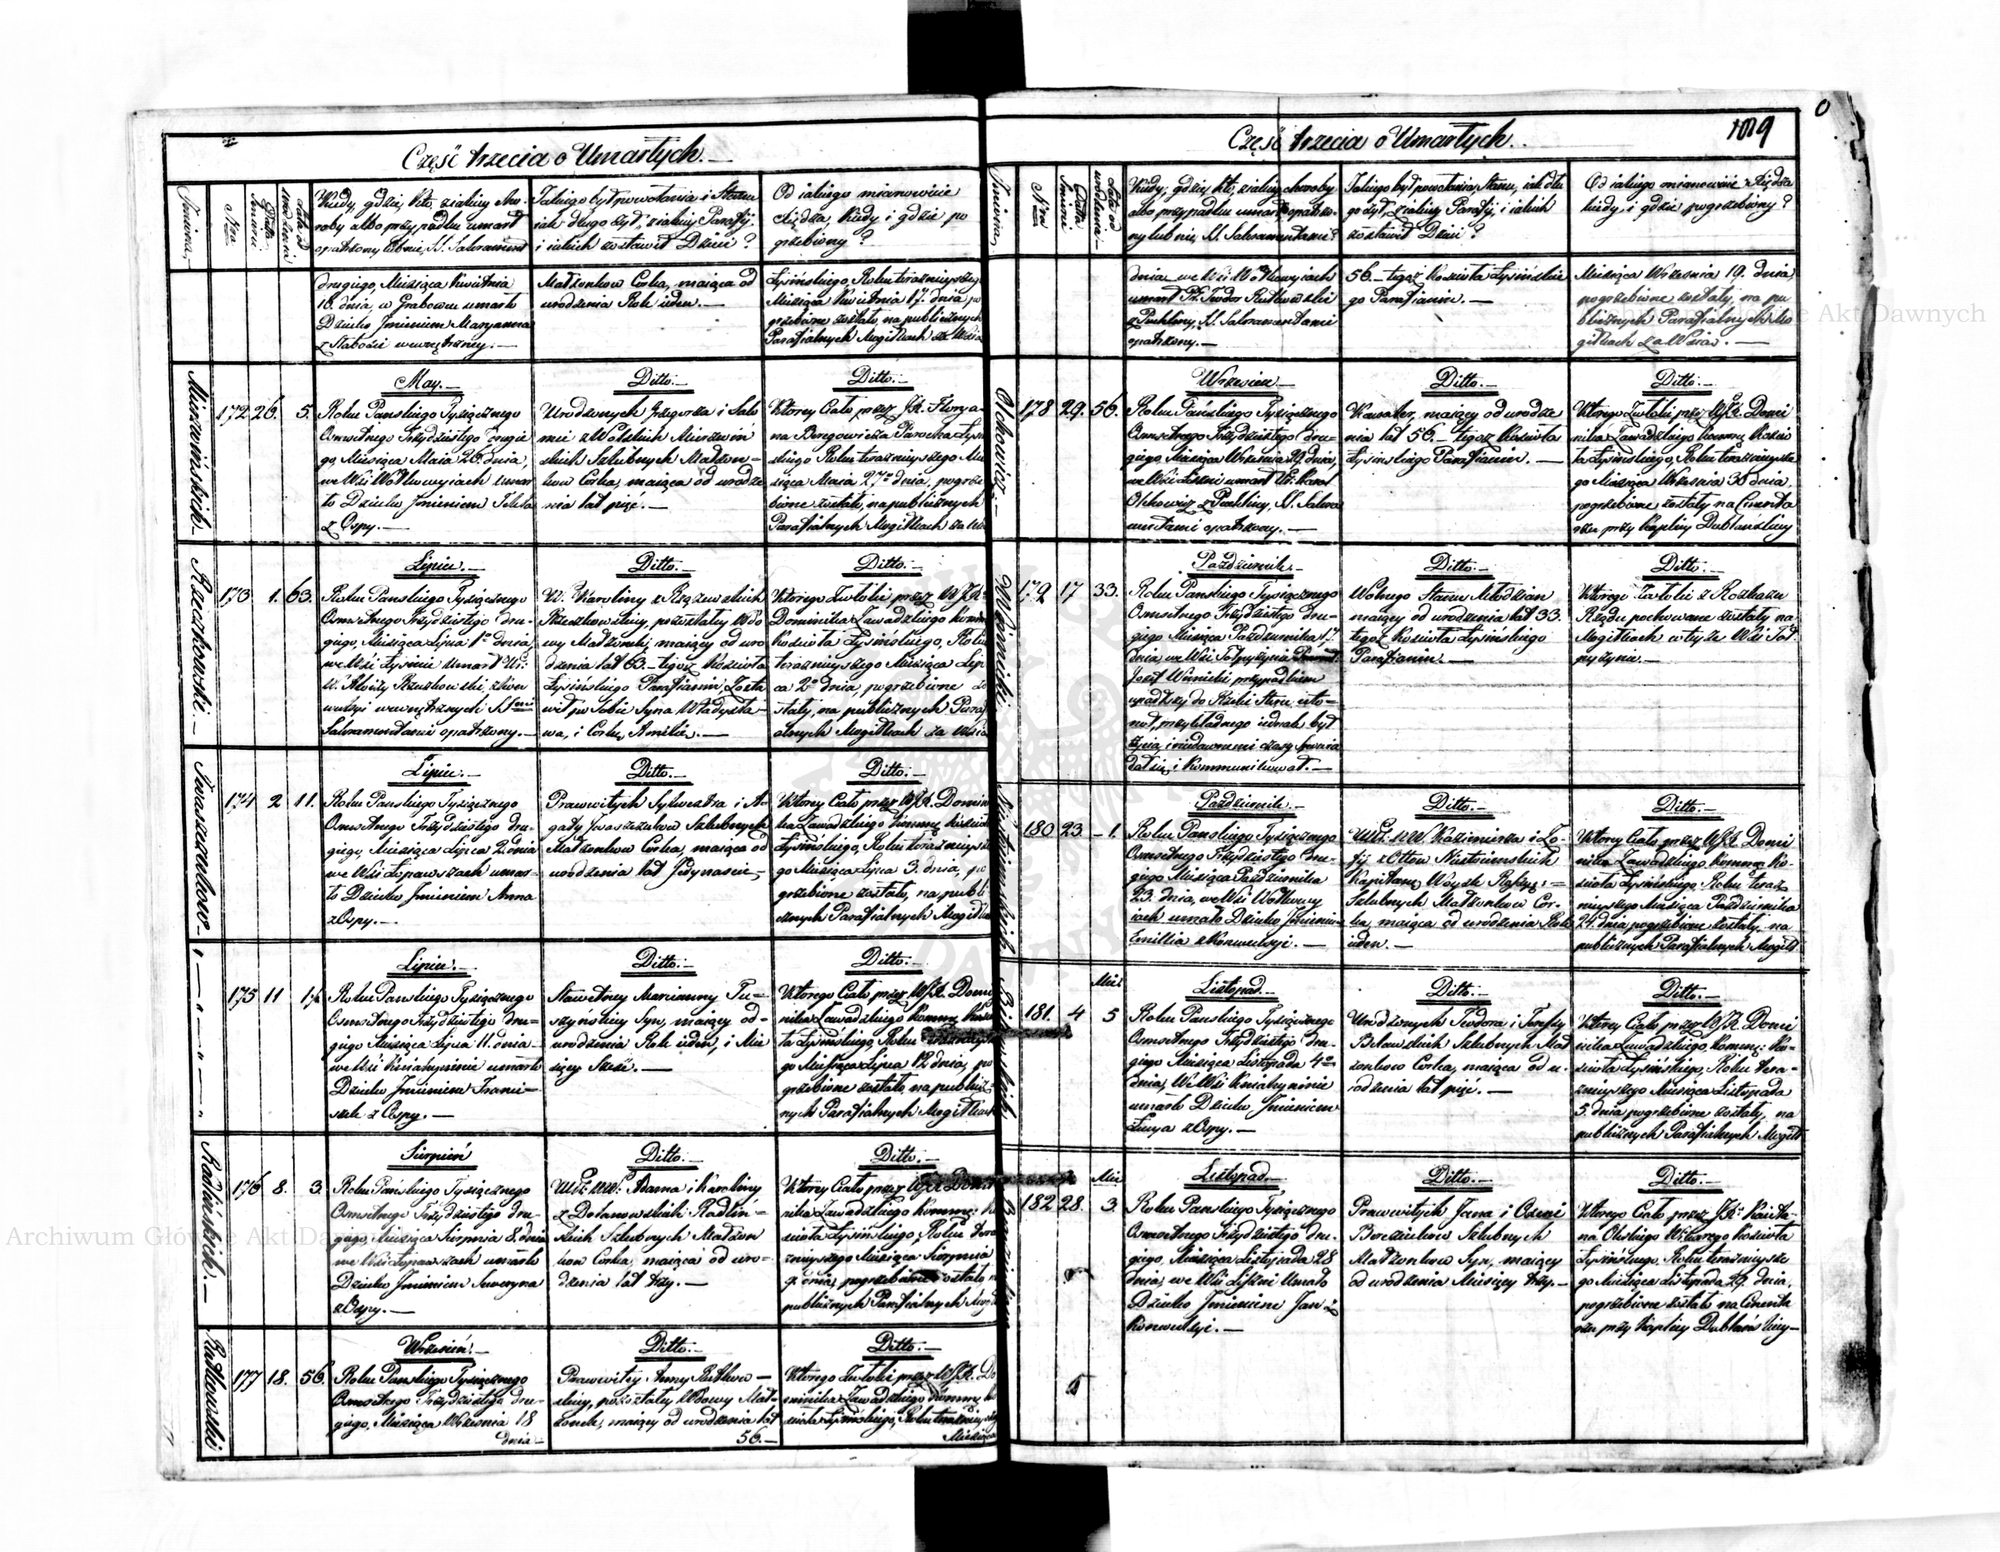 Część trzecia o Umarłych.
Kiedy, gdzie, kto, z jakiey cho-
roby albo przypadku umarł
opatrzony lub nie, SS. Sakrament
Jakiego był powołania i Stanu
jak długo żył, z jakiey Parafij
i jakich zostawił Dzieci?
Od jakiego mianowicie
Xiędza, kiedy i gdzie po
grzebiony?
drugiego, Miesiąca Kwietnia
16. dnia, w Grabowcu umarło
Dziecko Jmieniem Maryanna
z Słabości wewnętrzney.
Małżonków Córka, maiąca od
urodzenia Rok ieden.
Łysińskiego, Roku teraznieyszego
Miesiąca Kwietnia 17. dnia, po
grzebione zostało, na publicznych
Parafialnych Mogiłkach za Wsią
May.
172 26. 5.
Roku Panskiego Tysiącznego
Osmsetnego Trzydziestego drugie
go, Miesiąca Maia 26. dnia,
we Wsi Wołkowyiach umar
ło Dziecko Jmieniem Tekla
z Ospy.
Ditto.
Urodzonych Grzegorza i Salo
mei z Wolskich Mierzwiń
skich Szlubnych Małżon-
ków Córka, maiąca od urodze
nia lat pięć.
Ditto.
Ktorey Ciało przez JX. Florya-
na Parocha Łysiń
skiego Roku teraznieyszego Mie
siąca Maia 27. dnia, pogrze
bione zostało, na publicznych
Parafialnych Mogiłkach za Wsią
Rzeczkowski.
Lipiec.
173 1. 63.
Roku Panskiego Tysiącznego
Osmsetnego Trzydziestego dru-
giego, Miesiąca Lipca 1. dnia,
we Wsi Łysinie umarł
wewnętrznych
Sakramentami opatrzony.
Ditto.
Karoliny z
pozostałey Wdo
wy Małżonek, maiący od uro
dzenia lat 63. tegoż Kościoła
Łysińskiego Parafianin Zosta
wił po sobie Syna Władysła-
wa, i Córkę Amilię.
Ditto.
Ktorego Zwłoki przez WJX.
Dominika Zawadzkiego Komm
Kościoła Łysińskiego, Roku
teraznieyszego Miesiąca Lip
ca 2. dnia, pogrzebione zo
stały, na publicznych Para
fialnych Mogiłkach za Wsią
Lipiec.
174 2 11.
Roku Panskiego Tysiącznego
Osmsetnego Trzydziestego dru-
giego, Miesiąca Lipca 2. dnia
we Wsi Łopawszach umar-
ło Dziecko Jmieniem Anna
z Ospy.
Ditto.
Prawowitych Sylwestra i A-
gaty Iwaszczuków Szlubnych
Małżonków Córka, maiąca od
urodzenia lat Jedynaście,
Ditto.
Ktorey Ciało przez WJX. Domini
ka Zawadzkiego Kommę Kościoła
Łysińskiego, Roku teraznieysze
go Miesiąca Lipca 3. dnia, po
grzebione zostało, na publi
cznych Parafialnych Mogiłkach
Lipiec.
175 11 1½
Roku Panskiego Tysiącznego
Osmsetnego Trzydziestego dru-
giego Miesiąca Lipca 11. dnia
we Wsi Kniahyninie umarło
Dziecko Jmieniem Franci-
szek z Ospy.
Ditto.
Sławetney Maryanny Tu-
szyńskiey Syn, maiący od
urodzenia Rok ieden, i Mie
sięcy Sześć.
Ditto.
Ktorego Ciało przez WJX. Domi
nika Zawadzkiego Kommę Kościo
ła Łysińskiego, Roku teraznieysze
go Miesiąca Lipca 12 dnia, po
grzebione zostało, na publicz
nych Parafialnych Mogiłkach
Radlińskich.
Sierpień
176 8. 3.
Roku Pańskiego Tysiącznego
Osmsetnego Trzydziestego dru-
giego, Miesiąca Sierpnia 8. dnia
we Wsi Łopawszach umarło
Dziecko Jmieniem Seweryna
z Ospy.
Ditto.
Adama i Karoliny
Radliń-
skich Szlubnych Małżon
ków Córka, maiąca od uro-
dzenia lat trzy.
Ditto.
Ktorey Ciało przez WJX. Domi
nika Zawadzkiego Komm: Ko
ścioła Łysińskiego, Roku tera
znieyszego Miesiąca Sierpnia
9. dnia, pogrzebione zostało na
publicznych Parafialnych Mogił
Rutkowski
Wrzesień.
177 18. 56.
Roku Panskiego Tysiącznego
Osmsetnego Trzydziestego dru-
giego, Miesiąca Września 18
dnia
Ditto.
Prawowitey Anny Rutkow-
skiey, pozostałey Wdowy Mał-
żonek, maiący od urodzenia lat
56.
Ditto.
Ktorego Zwłoki przez WJX. Do
minika Zawadzkiego Kommę Ko
ścioła Łysińskiego, Roku teraznieyszego
Miesiąca
Część trzecia o Umarłych.
1019
Kiedy, gdzie, kto, z jakiey choroby
albo przypadku umarł, opatrzo-
ny lub nie, SS. Sakramentami?
Jakiego był powołania, Stanu, jak dłu
go żył, z jakiey Parafij, i jakich
zostawił Dzieci?
Od jakiego mianowicie Xiędza
kiedy i gdzie pogrzebiony?
dnia, we Wsi Wołkowyiach
umarł Teodor Rutkowski
z Puchliny, SS. Sakramentami
opatrzony.
56. tegoż Kościoła Łysińskie
go Parafianin.
Miesiąca Września 19. dnia,
pogrzebione zostały, na pu
blicznych Parafialnych Mo
giłkach za Wsią.
Olchowicz.
Wrzesień
178 29. 56.
Roku Pańskiego Tysiącznego
Osmsetnego Trzydziestego dru-
giego, Miesiąca Września 29. dnia,
we Wsi Liszni umarł Karol
Olchowicz z Puchliny, SS. Sakra
mentami opatrzony.
Ditto.
Kawaler, maiący od urodze
nia lat 56. tegoż Kościoła
Łysińskiego Parafianin.
Ditto.
Ktorego Zwłoki przez WJX. Domi
nika Zawadzkiego Kommę Kościo
ła Łysińskiego, Roku teraznieysze
go Miesiąca Września 30 dnia,
pogrzebione zostały na Cmenta
rzu przy Kaplicy Dublańskiey
Woinicki.
Pazdziernik.
179 17 33.
Roku Panskiego Tysiącznego
Osmsetnego Trzydziestego dru-
giego Miesiąca Pazdziernika 17.
dnia, we Wsi
Jozef Woinicki przypadkiem
wpadłszy do Rzeki uto-
nął, przykładnego iednak był
życia, i niedawnemi czasy
dał się i Kommunikował.
Ditto.
Wolnego Stanu Młodzian
maiący od urodzenia lat 33.
tegoż Kościoła Łysińskiego
Parafianin.
Ditto.
Ktorego Zwłoki z Rozkazu
Rządu pochowane zostały na
Mogiłkach w teyże Wsi
Pazdziernik.
180 23. 1.
Roku Panskiego Tysiącznego
Osmsetnego Trzydziestego dru-
giego Miesiąca Pazdziernika
23. dnia, we Wsi Wołkowy
iach umarło Dziecko Jmieniem
Emilia z Konwulsyi.
Ditto.
Kazimierza i Zo-
fij z Ottow
Kapitana Woysk
Szlubnych Małżonków Cór-
ka, maiąca od urodzenia Rok
ieden.
Ditto.
Ktorey Ciało przez WJX. Domi
nika Zawadzkiego Kommę Ko-
ścioła Łysińskiego, Roku teraz
nieyszego Miesiąca Pazdziernika
24. dnia pogrzebione zostało, na
publicznych Parafialnych Mogił
Listopad.
Mie:
181. 4 5
Roku Panskiego Tysiącznego
Osmsetnego Trzydziestego dru-
giego Miesiąca Listopada 4.
dnia, We Wsi Kniahyninie
umarło Dziecko Jmieniem
Łucya z Ospy.
Ditto.
Urodzonych Teodora i Teresy
Szlubnych Mał
żonków Córka, maiąca od u-
rodzenia lat pięć.
Ditto.
Ktorey Ciało przez WJX. Domi
nika Zawadzkiego, Kommę: Ko-
ścioła Łysińskiego, Roku tera-
znieyszego Miesiąca Listopada
5. dnia pogrzebione zostało, na
publicznych Parafialnych Mogił
Listopad.
Mie
182 28. 3.
Roku Panskiego Tysiącznego
Osmsetnego Trzydziestego dru-
giego, Miesiąca Listopada 28
dnia, we Wsi Liszni Umarło
Dziecko Jmieniem Jan z
Konwulsyi.
Ditto.
Prawowitych Jana i
Szlubnych
Małżonków Syn, maiący
od urodzenia Miesięcy trzy.
Ditto.
Ktorego Ciało przez JX. Kaieta-
na Wikarego Kościoła
Łysińskiego, Roku teraznieysze
go Miesiąca Listopada 29. dnia,
pogrzebione zostało na Cmenta
rzu przy Kaplicy Dublańskiey
Archiwum Główne Akt Dawnych